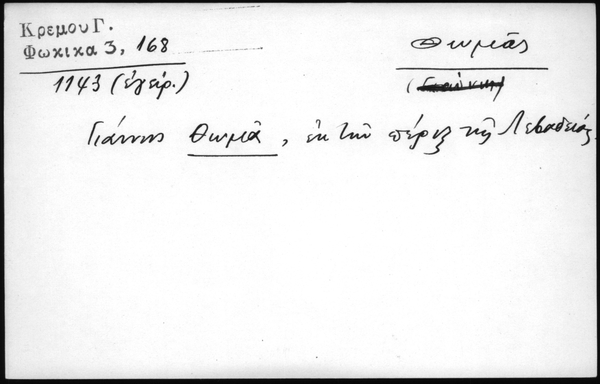 Κρεμου Γ.
Φωκικα 3, 168
1143 (ἐγειρ.)
Θωμιᾶς
Γιάννης Θωμιᾶ, ἐκ τῶν πέριξ τῆς Λεβαδειάς.